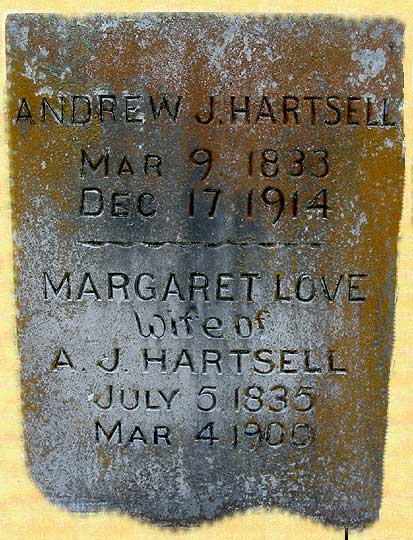 ANDREW J. HARTSELL
MAR 9. 1833
DEC 17 1914
MARGARET LOVE
Wife of
A. J. HARTSELL
JULY 5 1835
MAR 4 1900